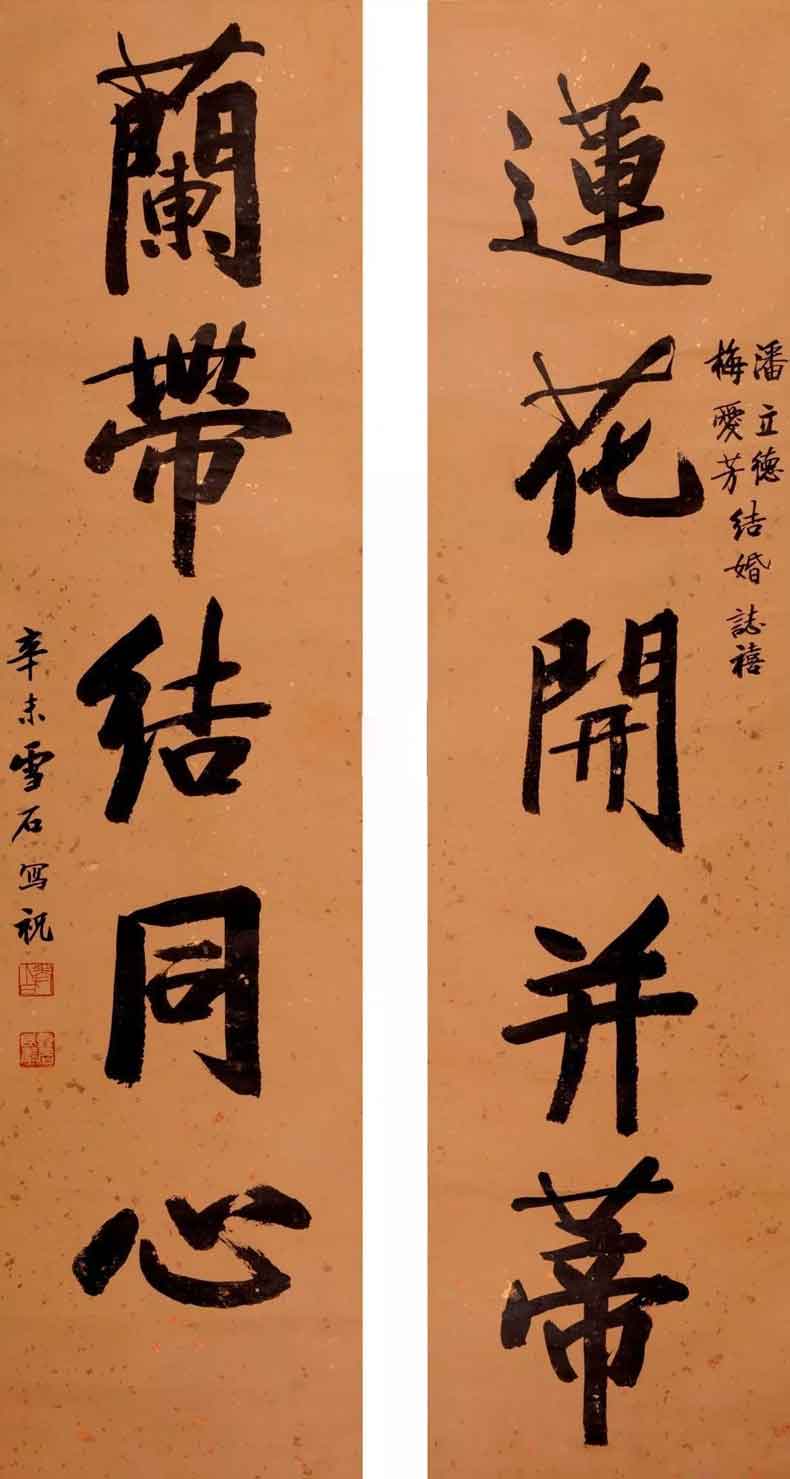 蓮花開并蒂
潘立德
梅愛芳
結婚誌禧
蘭帶結同心
辛未雪石寫祝